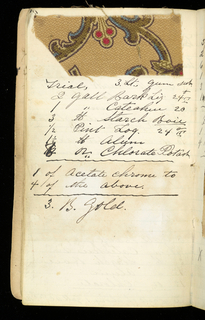 Trials 3. lb. Gum
2 Gall Bark Liq 24 Tw
1 " Catechu 20
3 lb Starch Boil
1/2 Pint Log 24 Tw
1/2 lb Alum
6 oz Chlorate Potash
1 of Acetate chrome to
4 of the above.
3. B. Gold.